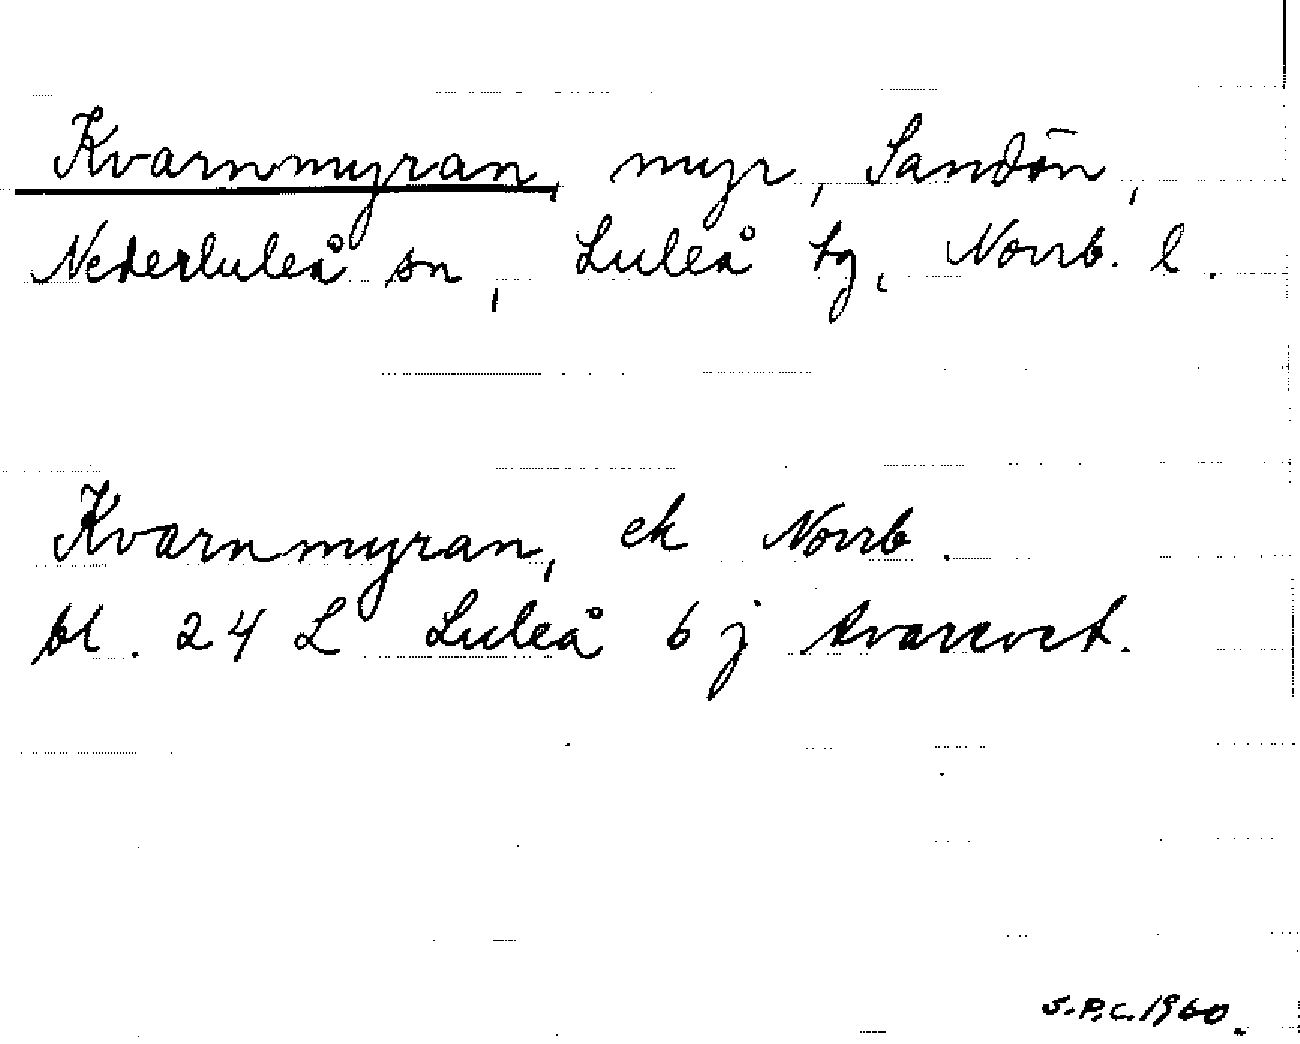 Kvarnmyran, myr, Sandön,
Nederluleå sn, Luleå tg, Norrb. l.
Kvarnmyran, ek Norrb.
bl. 24 L Luleå 6 j
S.P.C. 1960.